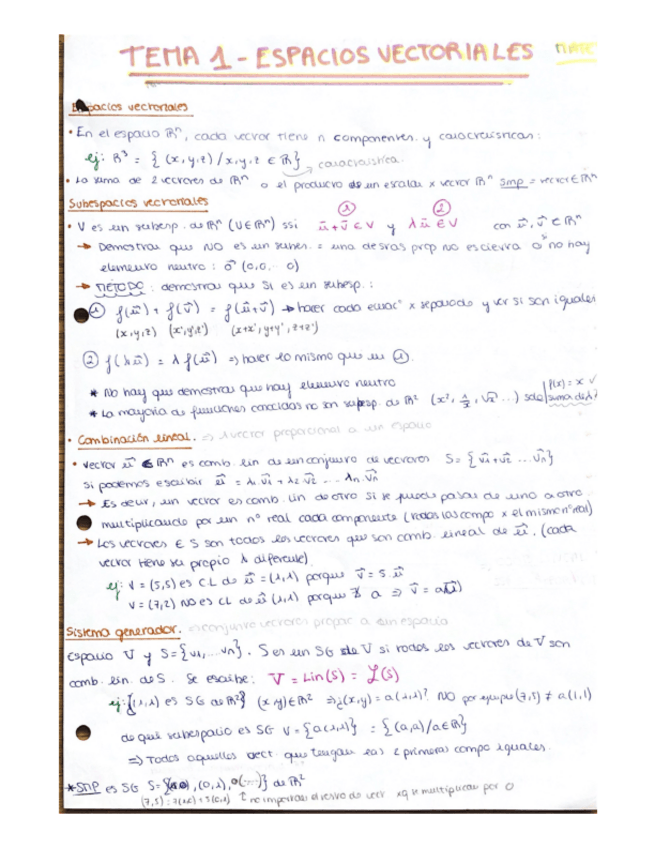 TEMA 1 - ESPACIOS VECTORIALES MATE
Espacios vectoriales
• En el espacio ℝⁿ, cada vector tiene n componentes y características:
ej: ℝ³ = { (x,y,z) / x,y,z ∈ ℝ } característica.
• La suma de 2 vectores de ℝⁿ o el producto de un escalar x vector ℝⁿ smp = vector ∈ ℝⁿ
Subespacios vectoriales
• V es un subesp. de ℝⁿ (V∈ℝⁿ) ssi ① ū+v̄ ∈ V y ② λū ∈ V con ū, v̄ ∈ ℝⁿ
→ Demostrar que NO es un suben. = una de sras prop no es cierva o si no hay
elemento neutro : o⃗ (0,0,... 0)
→ MÉTODO : demostrar que SI es un subesp. :
① f(u⃗) + f(v⃗) = f(u⃗+v⃗) → hacer cada ecuac° x separado y ver si son iguales
(x,y,z) (x',y',z') (x+x', y+y', z+z')
② f(λu⃗) = λ f(u⃗) ⇒ hacer lo mismo que en ①.
* No hay que demostrar que hay elemento neutro
* La mayoría de funciones conocidas no son subesp. de ℝ² (x², 1/x, √x ...) solo f(x) = x ✓ suma de λ?
• Combinación lineal. ⇒ 1 vector proporcional a un espacio
• vector u⃗ ∈ ℝⁿ es comb. lin de un conjunto de vectores S= { v₁+v₂ ... vₙ }
si podemos escribir u⃗ = λ₁v₁ + λ₂v₂ ... λₙ.vₙ
→ Es decir, un vector es comb. lin de otro si se puede pasar de uno a otro
multiplicando por un nº real cada componente (todos las compo x el mismo nº real)
→ Los vectores ∈ S son todos los vectores que son comb. lineal de u⃗. (cada
vector tiene su propio λ diferente)
ej: v = (5,5) es CL de u⃗ = (1,1) porque v⃗ = 5.u⃗
v = (7,2) NO es CL de u⃗ (1,1) porque ∄ a ⇒ v⃗ = a(u⃗)
Sistema generador. ⇒ conjunto vectores propor a un espacio
Espacio V y S={v₁,...vₙ}. S es un SG de V si todos los vectores de V son
comb. lin. de S. Se escribe: V = Lin(S) = ℒ(S)
ej: {(1,1) es SG de ℝ²} (x,y)∈ℝ² ⇒ ¿(x,y) = a(1,1)? NO por ejemplo (7,5) ≠ a(1,1)
de qué subespacio es SG V = {a(1,1)} = {(a,a)/a∈ℝ}
⇒ Todos aquellos vect. que tengan las 2 primeras compo iguales.
*SMP es SG S= {(1,0), (0,1), } de ℝ²
(7,5) : 7(1,0) + 5(0,1) ↑ no importan el resto de vect xq se multiplican por 0